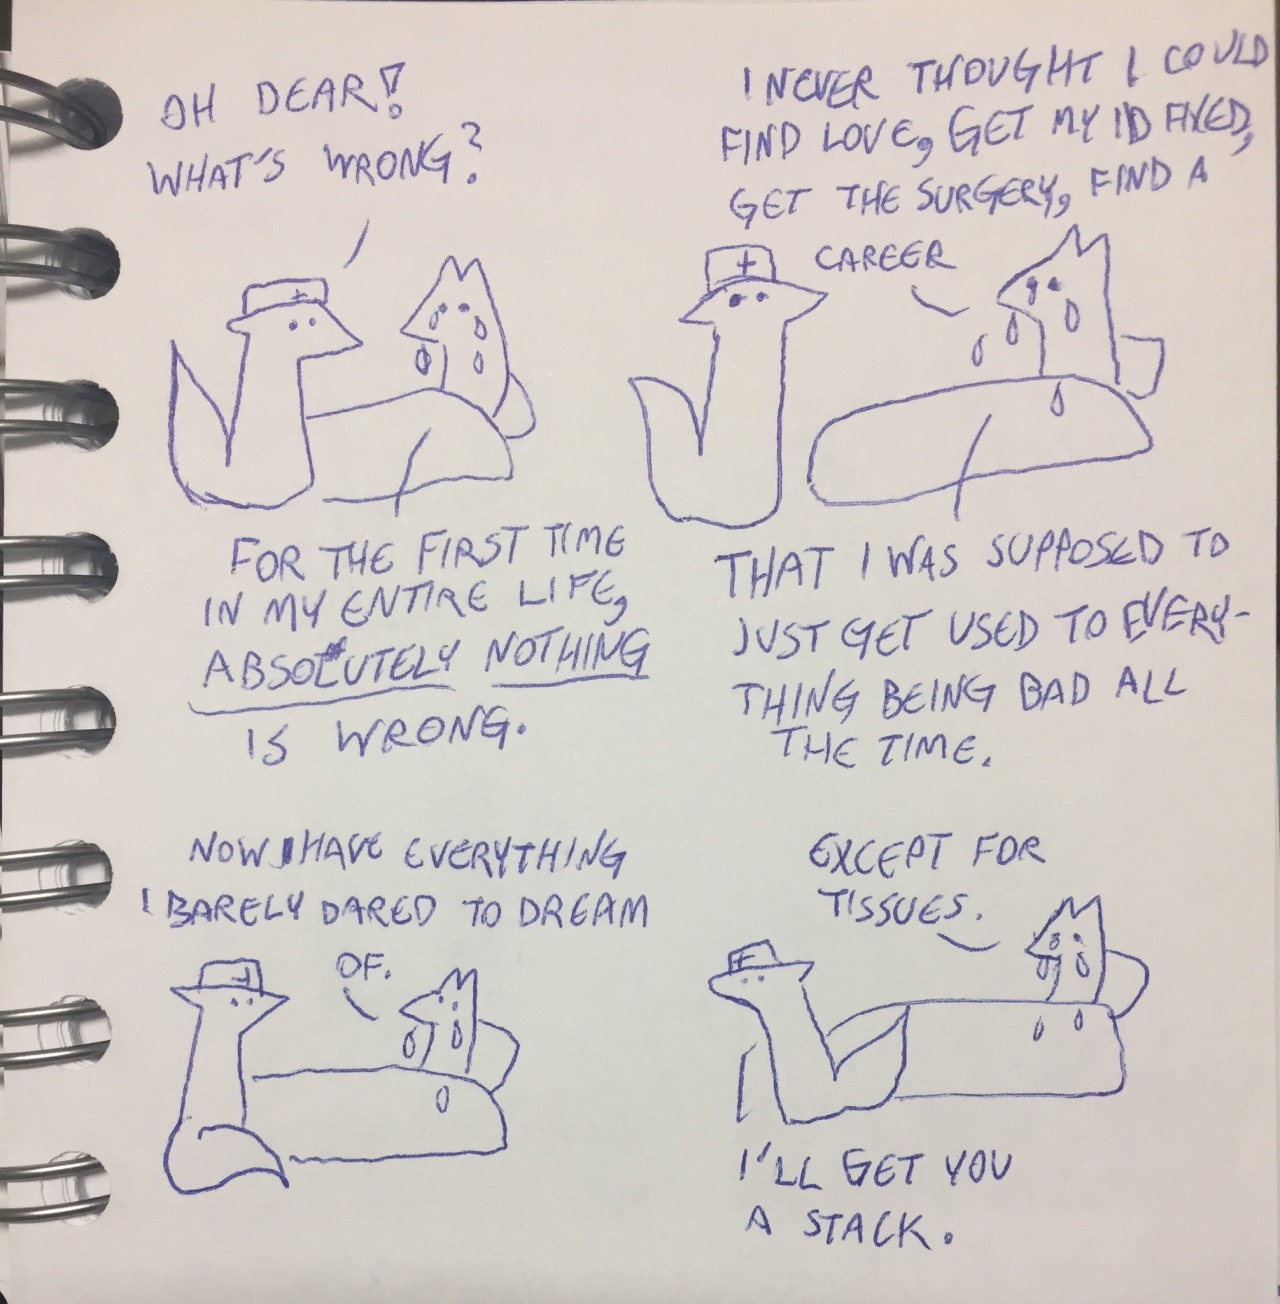 OH DEAR!
WHAT'S WRONG?
FOR THE FIRST TIME
IN MY ENTIRE LIFE,
ABSOLUTELY NOTHING
IS WRONG.
I NEVER THOUGHT I COULD
FIND LOVE, GET MY ID FIXED,
GET THE SURGERY, FIND A
CAREER
THAT I WAS SUPPOSED TO
JUST GET USED TO EVERY-
THING BEING BAD ALL
THE TIME.
NOW I HAVE EVERYTHING
I BARELY DARED TO DREAM
OF.
EXCEPT FOR
TISSUES.
I'LL GET YOU
A STACK.